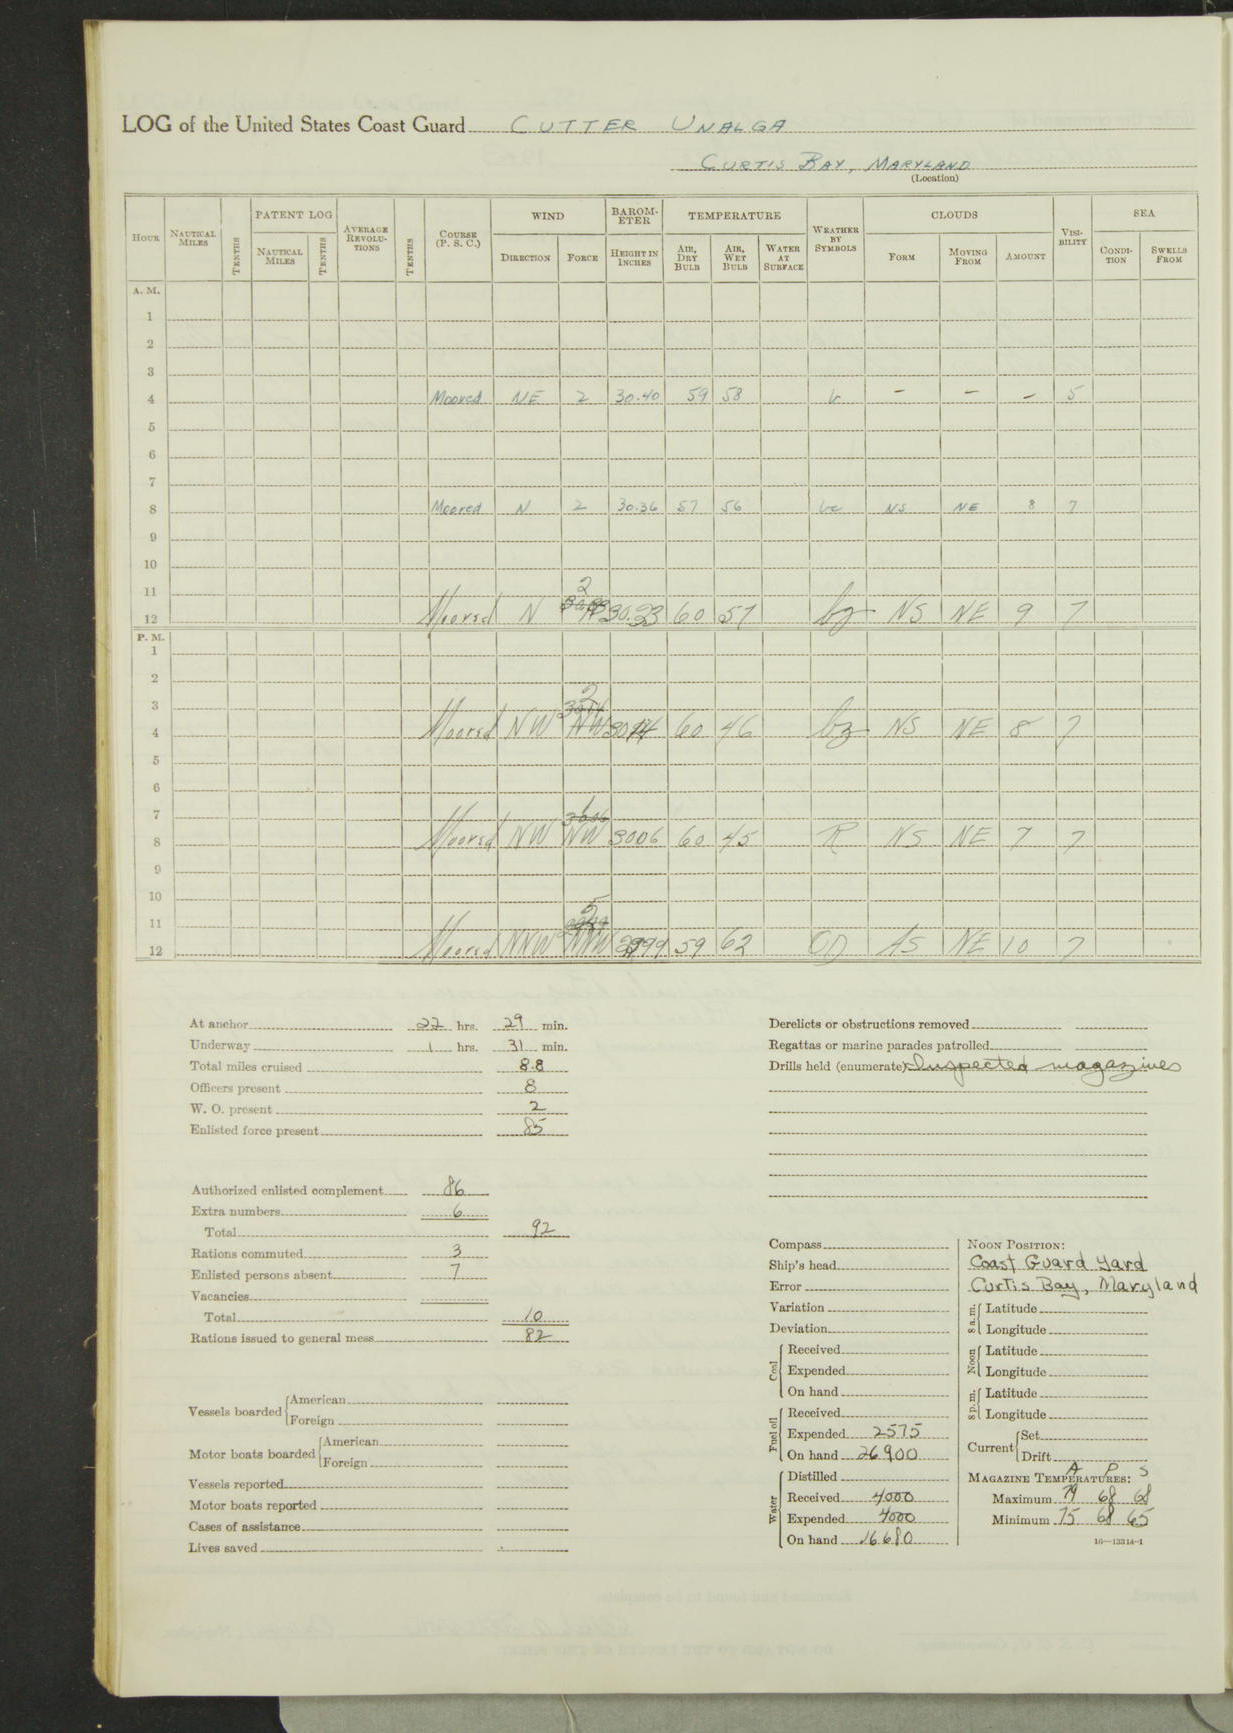 LOG of the United States Coast Guard CUTTER UNALGA
CURTIS BAY, MARYLAND
(Location)
HOUR NAUTICAL MILES TENTHS PATENT LOG NAUTICAL MILES TENTHS AVERAGE REVOLUTIONS TENTHS COURSE (P. S. C.) WIND DIRECTION FORCE BAROMETER HEIGHT IN INCHES TEMPERATURE AIR, DRY BULB AIR, WET BULB WATER AT SURFACE WEATHER BY SYMBOLS CLOUDS FORM MOVING FROM AMOUNT VISIBILITY SEA CONDITION SWELLS FROM
A. M.
1
2
3
4 Moored NE 2 30.40 59 58 b – – – 5
5
6
7
8 Moored N 2 30.36 57 56 bc NS NE 8 7
9
10
11
12 Moored N 2 30.23 60 57 bz NS NE 9 7
P. M.
1
2
3
4 Moored NW 2 3014 60 46 bz NS NE 8 7
5
6
7
8 Moored NW 1 3006 60 45 R NS NE 7 7
9
10
11
12 Moored NNW 5 2999 59 62 OD AS NE 10 7
At anchor 22 hrs. 29 min.
Underway 1 hrs. 31 min.
Total miles cruised 8.8
Officers present 8
W. O. present 2
Enlisted force present 85
Authorized enlisted complement 86
Extra numbers 6
Total 92
Rations commuted 3
Enlisted persons absent 7
Vacancies
Total 10
Rations issued to general mess 82
Vessels boarded American
Foreign
Motor boats boarded American
Foreign
Vessels reported
Motor boats reported
Cases of assistance
Lives saved
Derelicts or obstructions removed
Regattas or marine parades patrolled
Drills held (enumerate) Inspected magazines
Compass
Ship's head
Error
Variation
Deviation
Coal Received
Expended
On hand
Fuel oil Received
Expended 2575
On hand 26900
Water Distilled
Received 4000
Expended 4000
On hand 16680
NOON POSITION:
Coast Guard Yard
Curtis Bay, Maryland
8 a. m. Latitude
Longitude
Noon Latitude
Longitude
8 p. m. Latitude
Longitude
Current Set
Drift
A P S
MAGAZINE TEMPERATURES:
Maximum 79 68 68
Minimum 75 68 65
16—13314-1